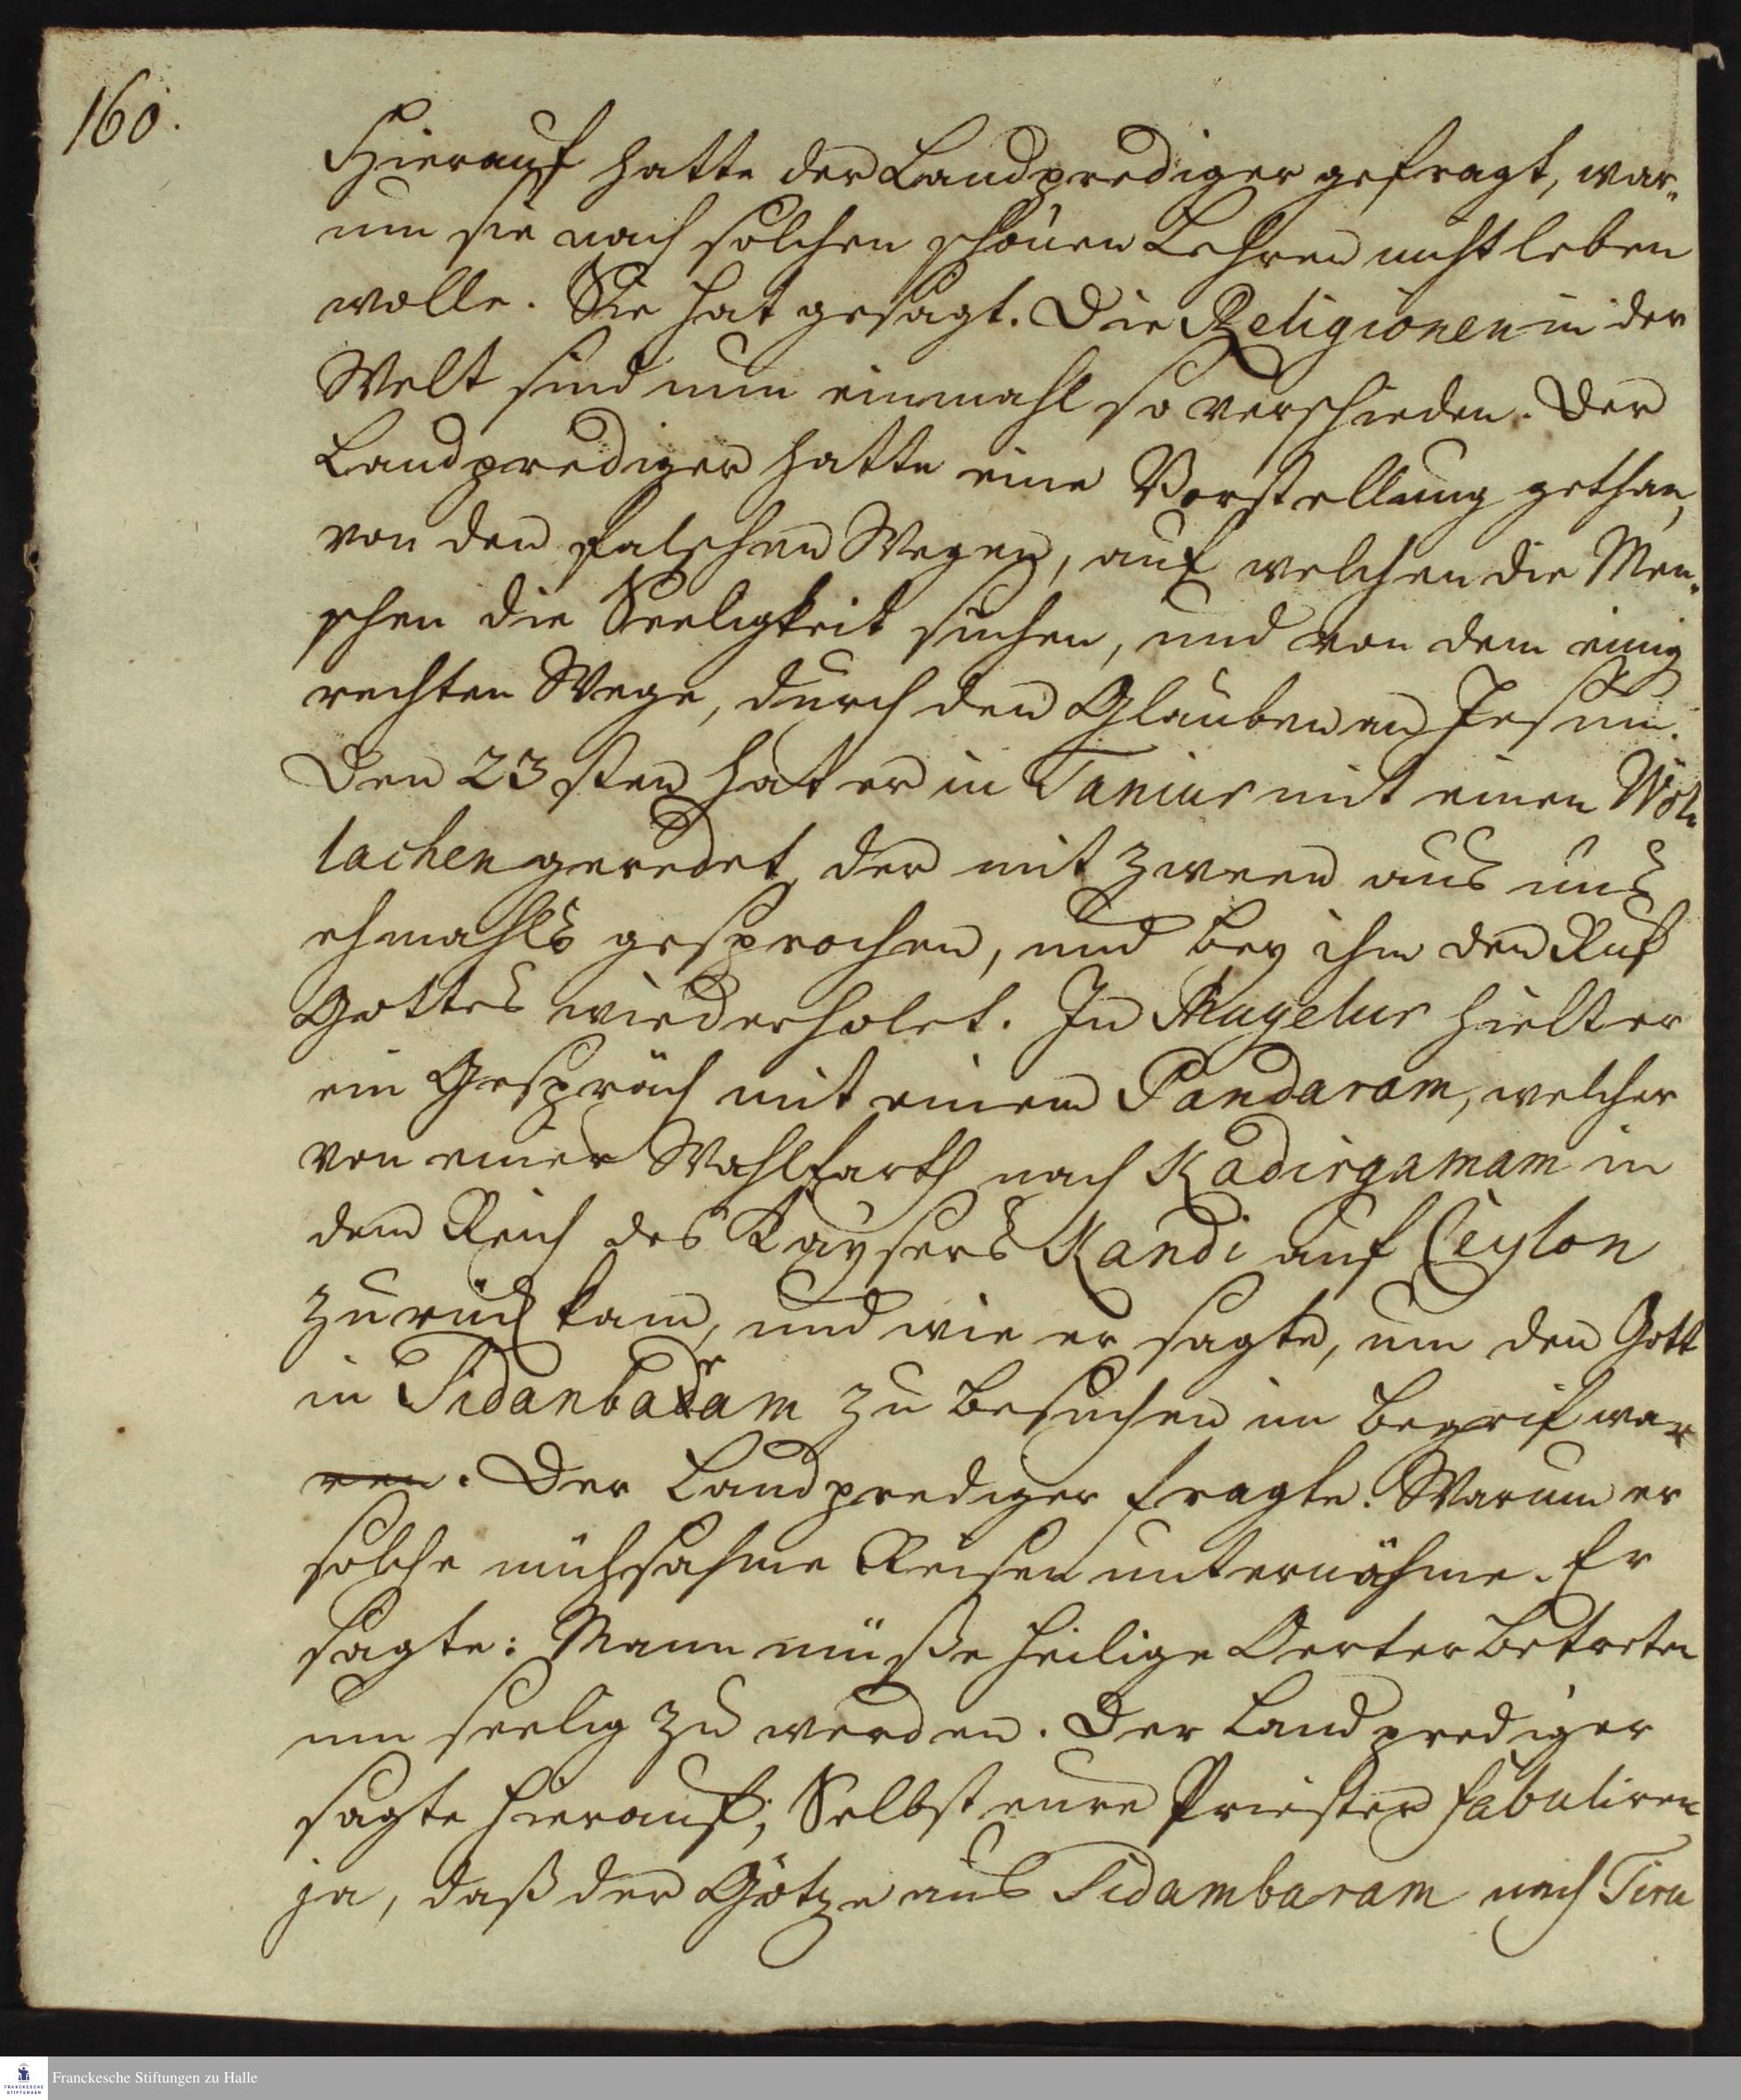 160.
Hierauf hatte der Landprediger gefragt, war-
um sie nach solchen schönen Lehren nicht leben
wolle. Sie hat gesagt. Die Religionen in der
Welt sind nun einmahl so verschieden. Der
Landprediger hatte eine Vorstellung gethan,
von den falschen Wegen, auf welchen die Men-
schen die Seeligkeit suchen, und von dem einig
rechten Wege, durch den Glauben an Jesum.
Den 23sten hat er in Taniur mit einen Wöl-
lachen geredet, der mit zween aus uns
ehmahls gesprochen, und bey ihm den Ruf
Gottes wiederholet. In Magelur hielt er
ein Gespräch mit einem Pandaram, welcher
von einer Wahlfarth nach Kadirgamam in
dem Reich des Kaysers Kandi auf Ceylon
zurück kam, und wie er sagte, um den Gott
in Sidanbaram zu besuchen im begrif war
ren. Der Landprediger fragte: Warum er
solche mühsahme Reisen unternähme. Er
sagte: Mann müsse heilige Oerter betreten
um seelig zu werden. Der Landprediger
sagte hierauf; Selbst eure Priester fabuliren
ja, daß der Götze aus Sidambaram nach Tiru
Franckesche Stiftungen zu Halle
FRANCKESCHE
STIFTUNGEN